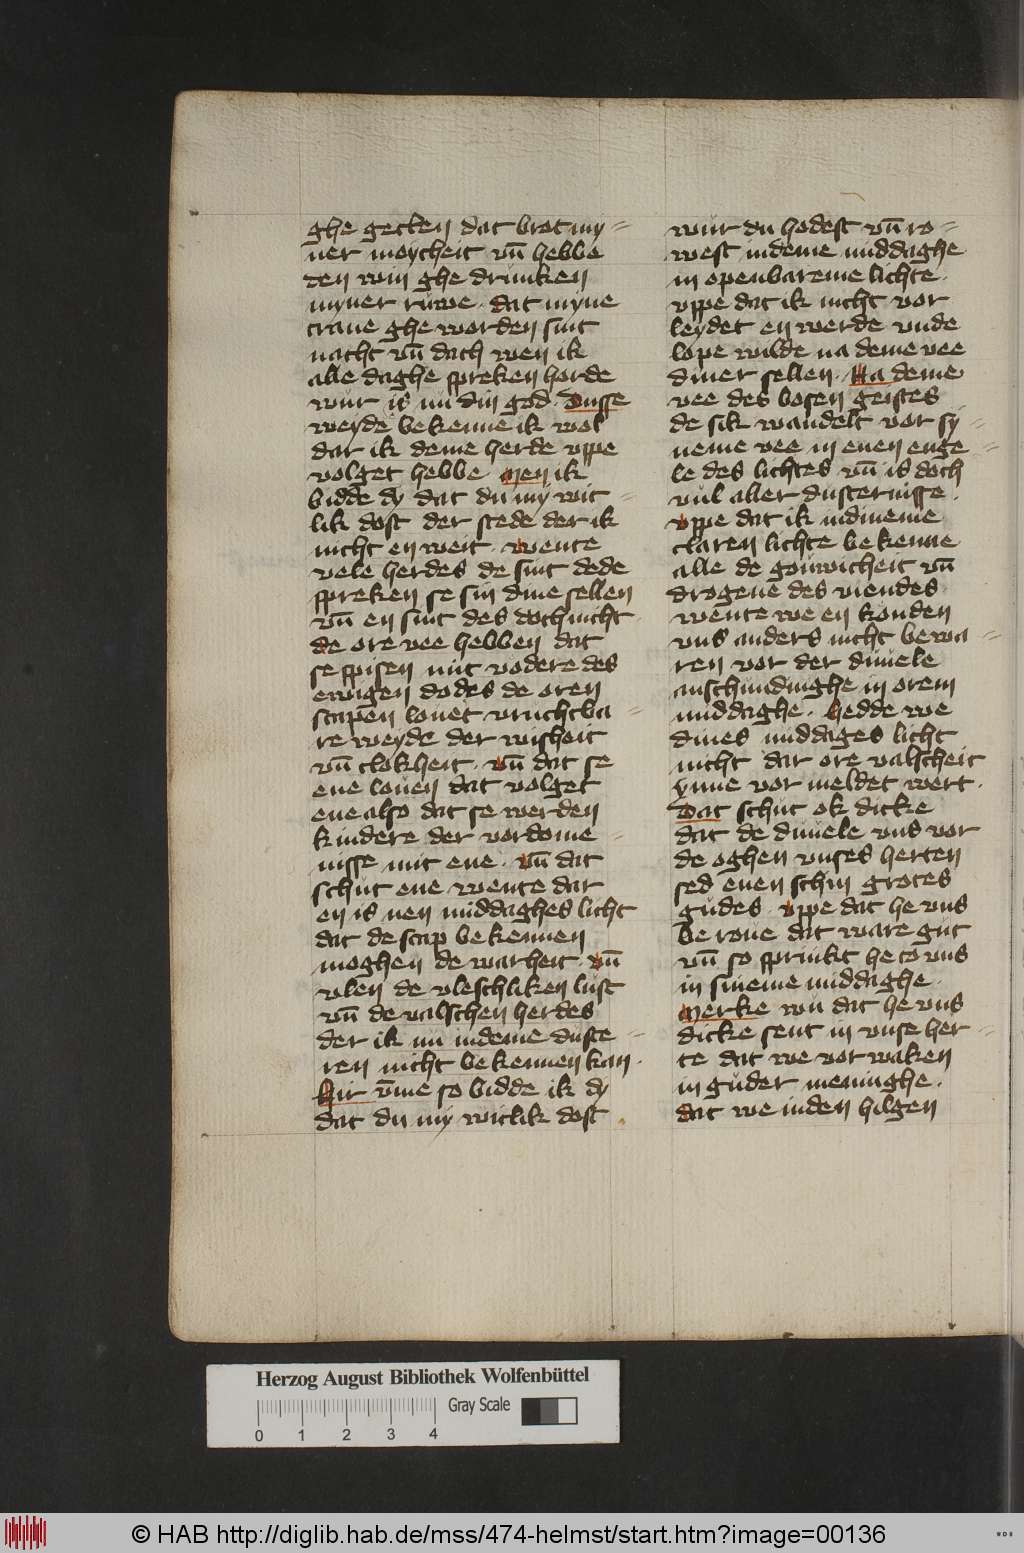 ghe getten dat brot my=
ner moycheit vn̄ hebbe
den win ghe drunken
myner ruwe · dat myne
trane ghe worden sint
nacht vn̄ dach wen ik
alle daghe spreken horde
wur is nu din god · Dusse
weyde bekenne ik wol
dar ik deme herde vppe
volget hebbe · Men ik
bidde dy dat du my wit=
lik dost der stede der ik
nicht en weit · wente
vele herdes de sint dede
spreken se sin dine sellen
vn̄ en sint des doch nicht ·
de ore vee hebben dat
se spisen mit vodere des
ewigen dodes de oren
scapen louet vruchtba=
re weyde der wisheit
vn̄ clokheit · vn̄ dat se
ene louen dat volget
ene also dat se werden
kindere der vordome=
nisse mit ene · vn̄ dat
schut ene wente dar
en is nen middaghes licht
dat de scap bekennen
moghen de warheit · vn̄
vlen de vleschliken lust
vn̄ de valschen herdes
der ik nu indeme duste=
ren nicht bekennen kan ·
Hir vm̄e so bidde ik dy
dat du my witlik dost
wur du hodest vn̄ ro=
west indeme middaghe
in openbareme lichte ·
vppe dat ik nicht vor
leydet en werde vnde
lope wilde na deme vee
diner sellen · Na deme
vee des bosen geistes
de sik wandelt vor sy=
neme vee in enen enge=
le des lichtes vn̄ is doch
vul aller dusternisse ·
vppe dat ik indineme
claren lichte bekenne
alle de gouwicheit vn̄
drogene des viendes
wente we en konden
vns anders nicht bewa=
ren vor der duuele
anschundinghe in orem
middaghe · hedde we
dines middages licht
nicht dar ore valscheit
ynne vor meldet wert ·
Dat schut ok dicke
dat de duuele vns vor
de oghen vnses herten
sed enen schin grotes
gudes · vppe dat he vns
be roue dat ware gut
vn̄ so sprinkt he to vns
in sineme middaghe ·
Merke wu dat he vns
dicke sent in vnse her=
te dat we vor waken
in guder meninghe ·
dat we inden hilgen
Herzog August Bibliothek Wolfenbüttel
Gray Scale
0 1 2 3 4
© HAB http://diglib.hab.de/mss/474-helmst/start.htm?image=00136
WDB